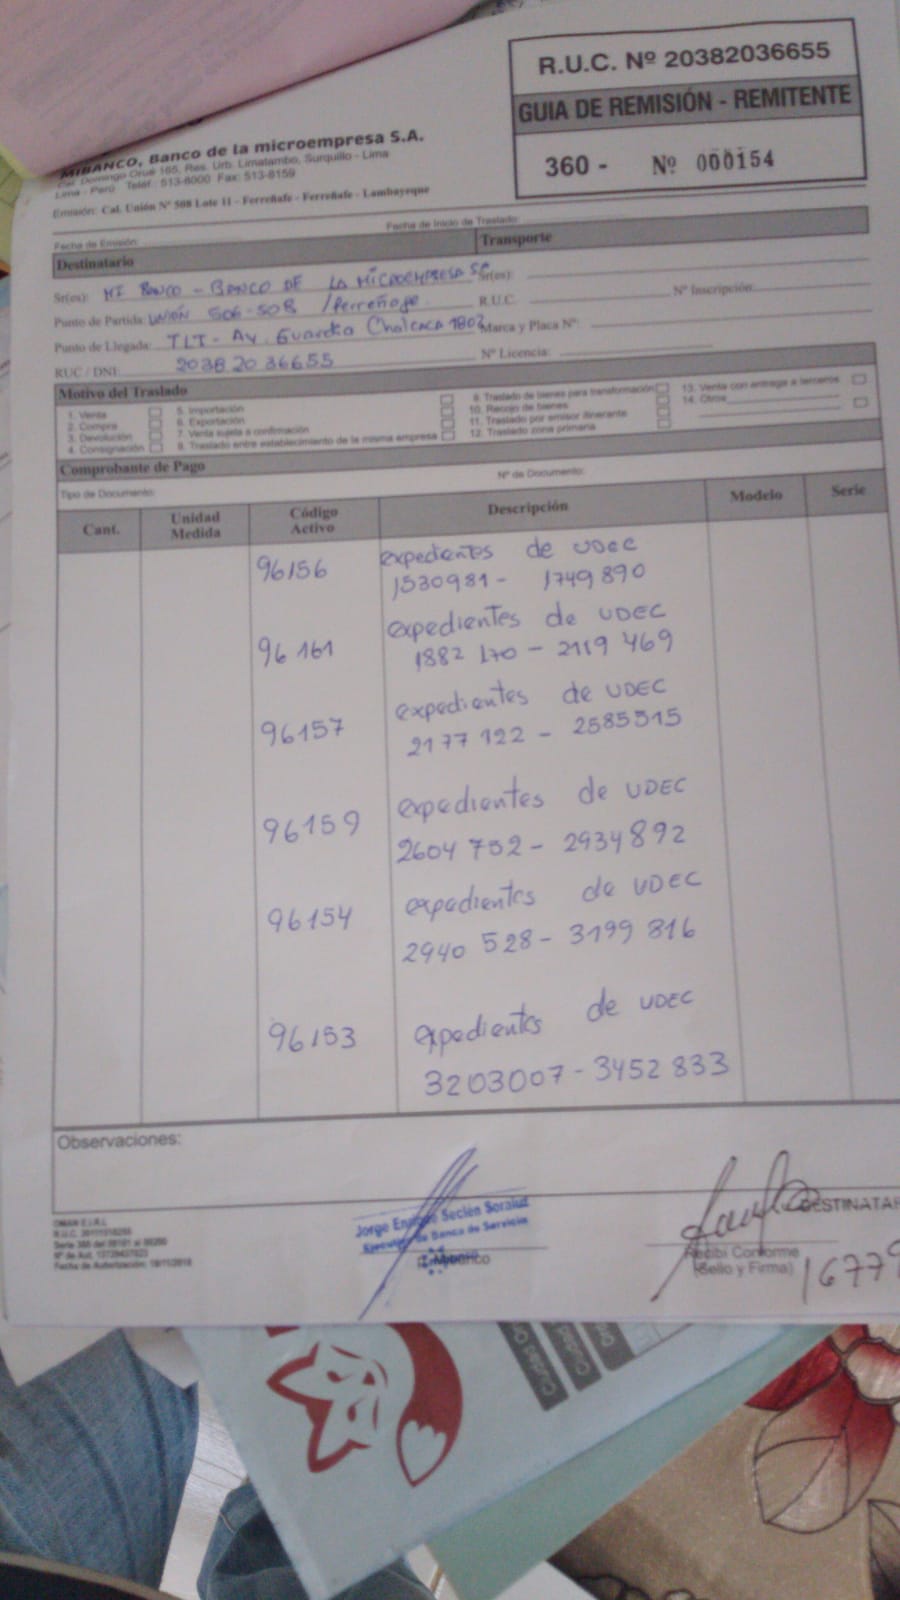 R.U.C. Nº 20382036655
GUIA DE REMISIÓN - REMITENTE
360 - Nº 000154
MIBANCO, Banco de la microempresa S.A.
Cal. Domingo Orué 165, Res. Urb. Limatambo, Surquillo - Lima
Lima - Perú Teléf.: 513-8000 Fax: 513-8159
Emisión: Cal. Unión Nº 508 Lote 11 - Ferreñafe - Ferreñafe - Lambayeque
Fecha de Emisión: Fecha de Inicio de Traslado:
Destinatario Transporte
Sr(es): MI BANCO - BANCO DE LA MICROEMPRESA SA Sr(es):
Punto de Partida: UNIÓN 506-508 /Ferreñafe R.U.C. Nº Inscripción:
Punto de Llegada: TLT - Av. Guardia Chalaca 1802 Marca y Placa Nº:
RUC / DNI: 20382036655 Nº Licencia:
Motivo del Traslado
1. Venta 5. Importación 9. Traslado de bienes para transformación 13. Venta con entrega a terceros
2. Compra 6. Exportación 10. Recojo de bienes 14. Otros
3. Devolución 7. Venta sujeta a confirmación 11. Traslado por emisor itinerante
4. Consignación 8. Traslado entre establecimiento de la misma empresa 12. Traslado zona primaria
Comprobante de Pago
Tipo de Documento: Nº de Documento:
Cant. Unidad Medida Código Activo Descripción Modelo Serie
96156 expedientes de UDEC
1530981 - 1749890
96161 expedientes de UDEC
1882170 - 2119469
96157 expedientes de UDEC
2177122 - 2585515
96159 expedientes de UDEC
2604752 - 2934892
96154 expedientes de UDEC
2940528 - 3199816
96153 expedientes de UDEC
3203007 - 3452833
Observaciones:
Jorge Enrique Seclén Soraluz
Ejecutivo de Banca de Servicio
DESTINATAR
Recibí Conforme
(Sello y Firma)